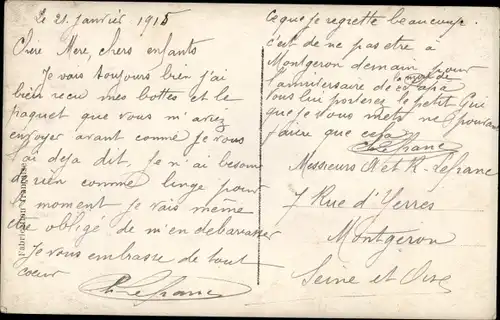 Le 21 janvier 1915
Chere Mere, chers enfants
Je vais toujours bien j'ai
bien recu mes bottes et le
paquet que vous m'aviez
envoyer avant comme je vous
l'ai deja dit, Je n'ai besoin
de rien comme linge pour
le moment je vais même
etre obligé de m'en debarasser
Je vous embrasse de tout
coeur
Ce que je regrette beaucoup
c'est de ne pas etre à
Montgeron demain pour
l'anniversaire de la mort de Papa
vous lui porterez le petit
que je vous ne pouvant
faire que cela
Messieurs A et R.
7 Rue d'Yerres
Montgeron
Seine et Oise
Fabrication Française